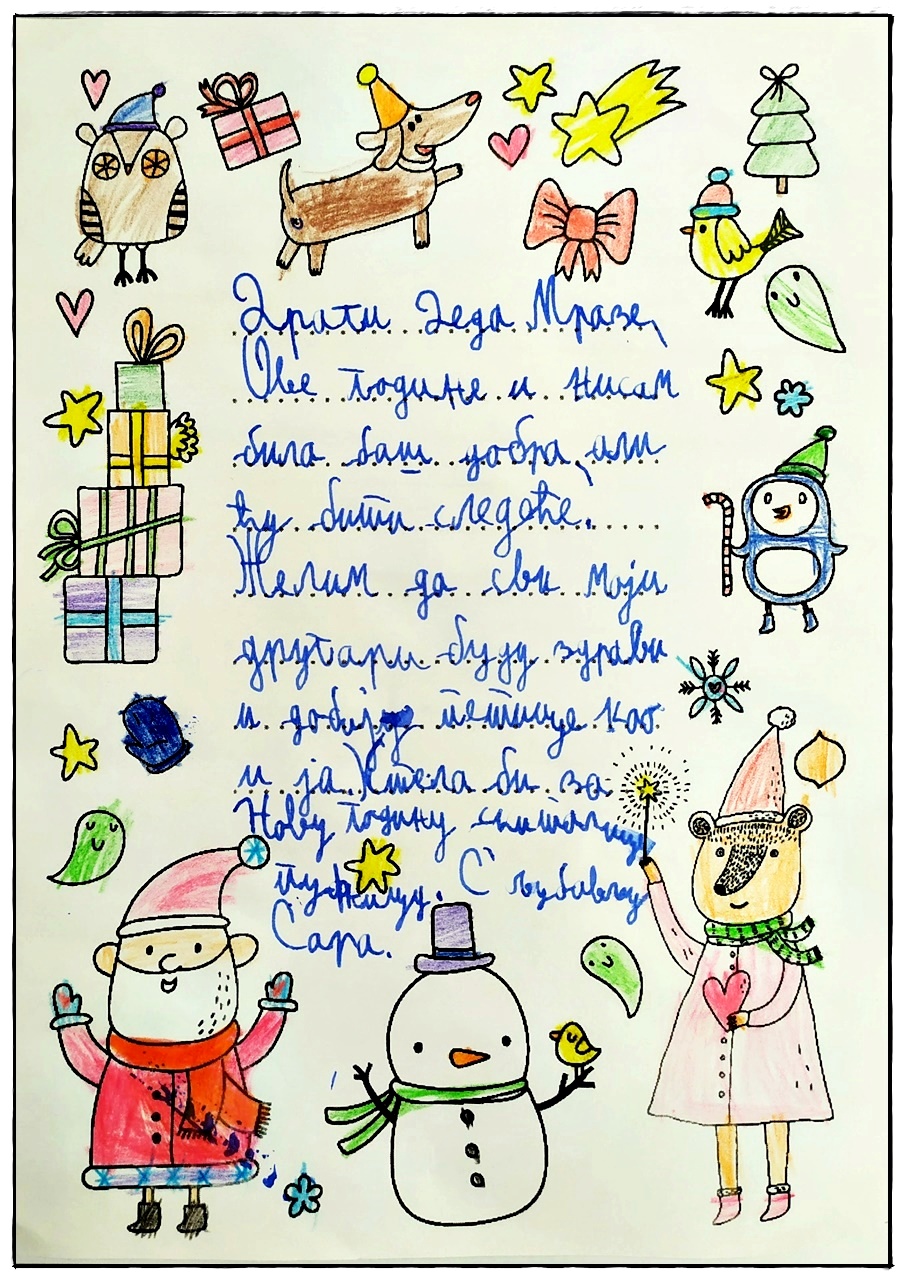 Драги Деда Мразе,
Ове године и нисам
била баш добра, али
ћу бити следеће.
Желим да сви моји
другари буду здрави
и добију петице као
и ја. Хтела би за
Нову годину
С љубављу
Сара.